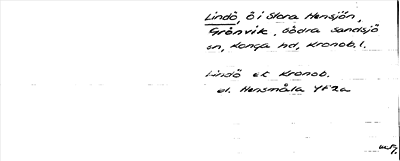 Lindö, ö i Stora Hensjön,
Grönvik, Södra Sandsjö
sn, Konga hd, Kronob. l.
Lindö ek Kronob.
el. Hensmåla 4F2a